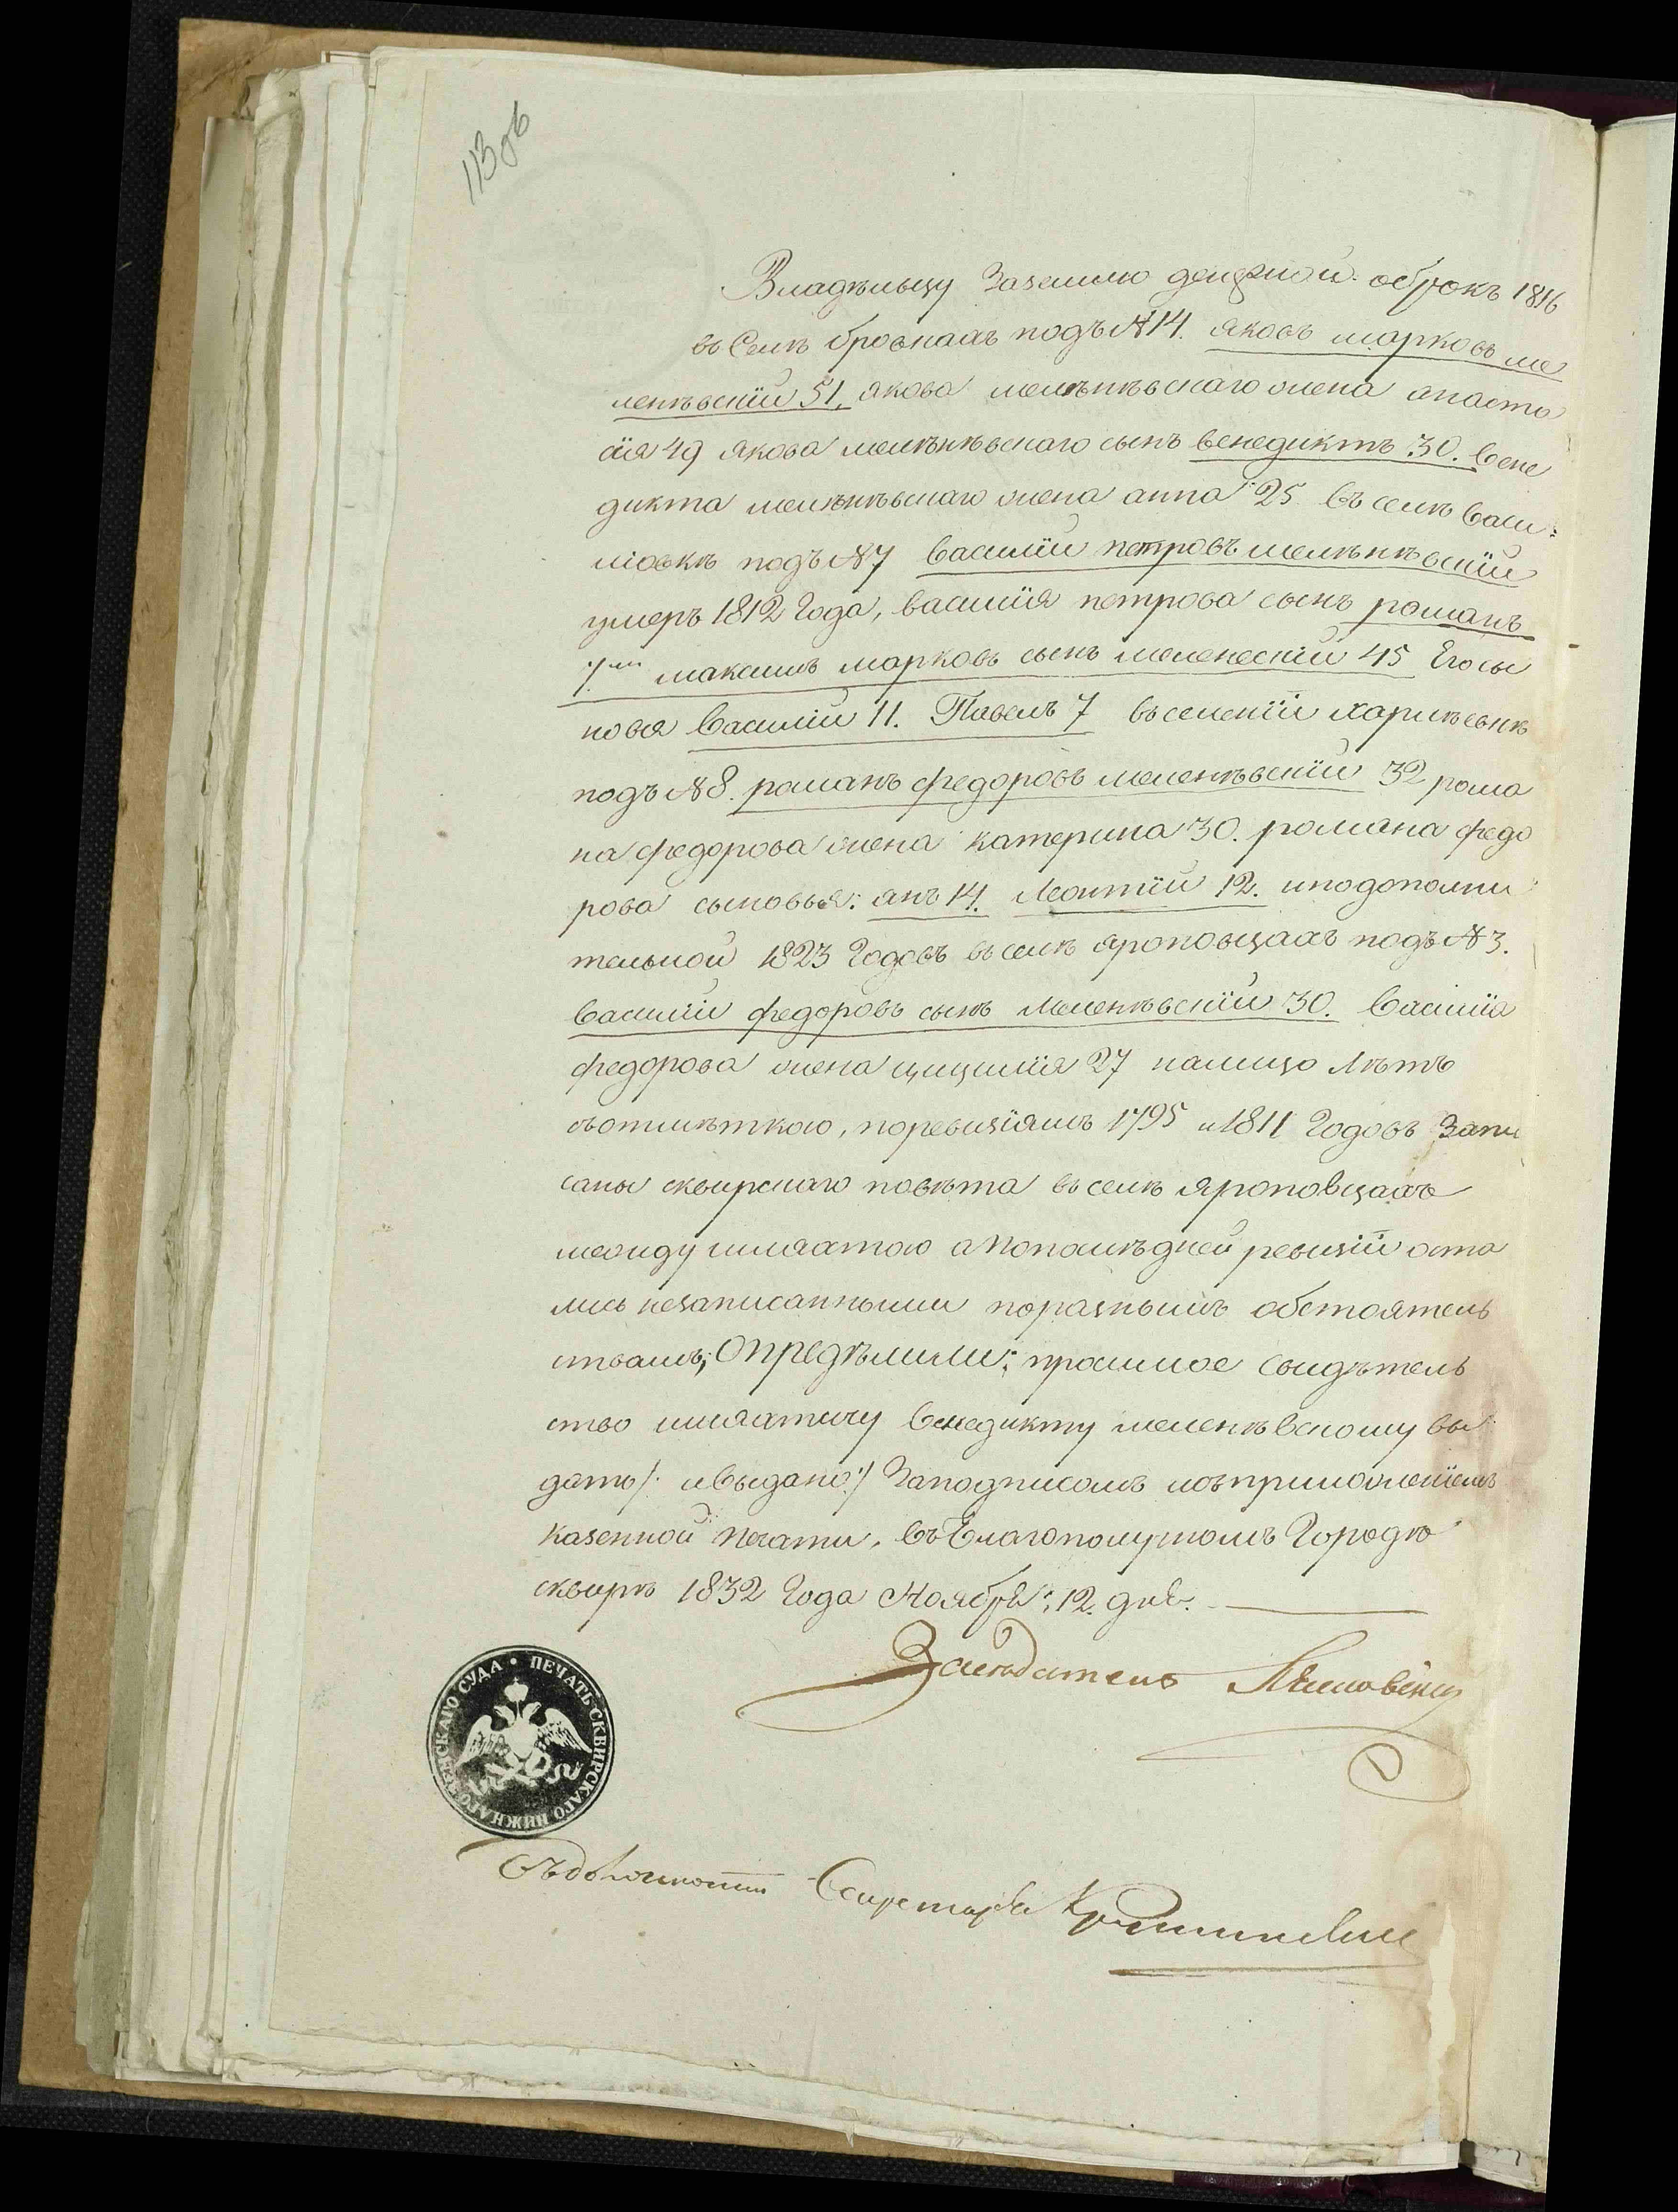 113 об
Владѣльцу За землю денежной оброкъ 1816
въ Селѣ бровкахъ подъ №14. яковъ марковъ ме
ленѣвскїй 51, якова меленѣвскаго жена анаста
сїя 49 якова меленѣвскаго сынъ венедиктъ 30. вене
дикта меленѣвскаго жена анна 25 въ селѣ васи:
лїовкѣ подъ №7 василїй петровъ меленѣвскїй
умеръ 1812 года, василїя петрова сынъ романъ
7ми максимъ марковъ сынъ меленескїй 45 Его сы
новья Василїй 11. Павелъ 7 въ селенїи харлѣевкѣ
подъ №8. романъ федоровъ меленѣвскїй 32 рома
на федорова жена катерина 30. романа федо
рова сыновья: янъ 14. Леонтїй 12. и по дополни
тельной 1823 Годовъ въ селѣ яроповцахъ подъ №3.
василїй федоровъ сынъ Меленѣвскїй 30. Василїя
федорова жена цицилїя 27 на лицо Лѣтъ
съ отмѣткою, по ревизїямъ 1795 и 1811 Годовъ Запи
саны сквирскаго повѣта въ селѣ яроповцахъ
между шляхтою а по послѣдней ревизїи оста
лись незаписанными по разнымъ обстоятель
ствамъ; Опредѣлили: просимое свидѣтель
ство шляхтичу венедикту меленѣвскому вы
дать /: и выдано :/ За подписомъ и съ приложенїемъ
казенной печати. въ Благополучномъ Городѣ
сквирѣ 1832 Года Ноября: 12. дня.
Засѣдатель
ПЕЧАТЬ СКВИРСКАГО НИЖНАГО ЗЕМСКАГО СУДА
Въ должности Секретаря